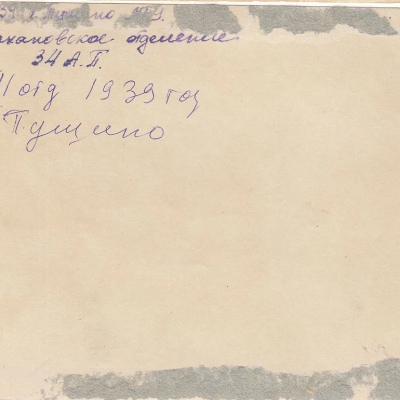 аховское отделение
34 А.П.
1 отд 1939 год
Пущино